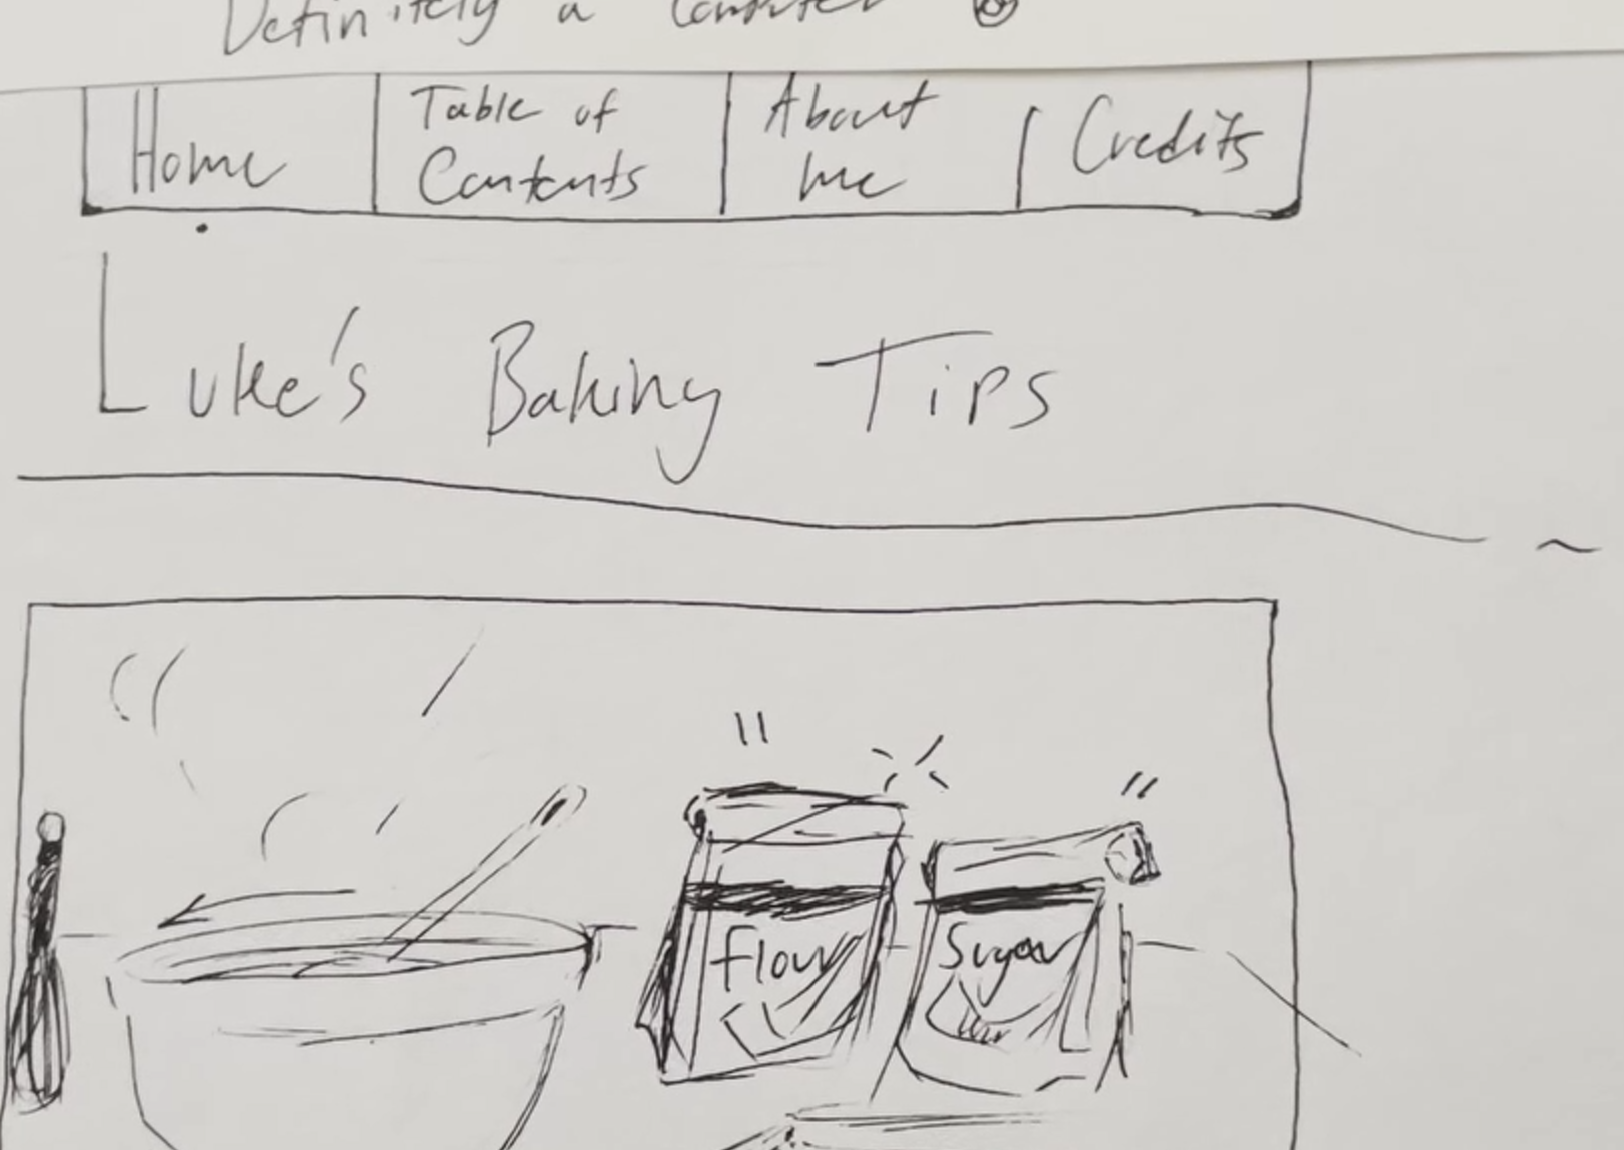 Definitely a Computer
Home
Table of
Contents
About
me
Credits
Luke's Baking Tips
Flour
Sugar